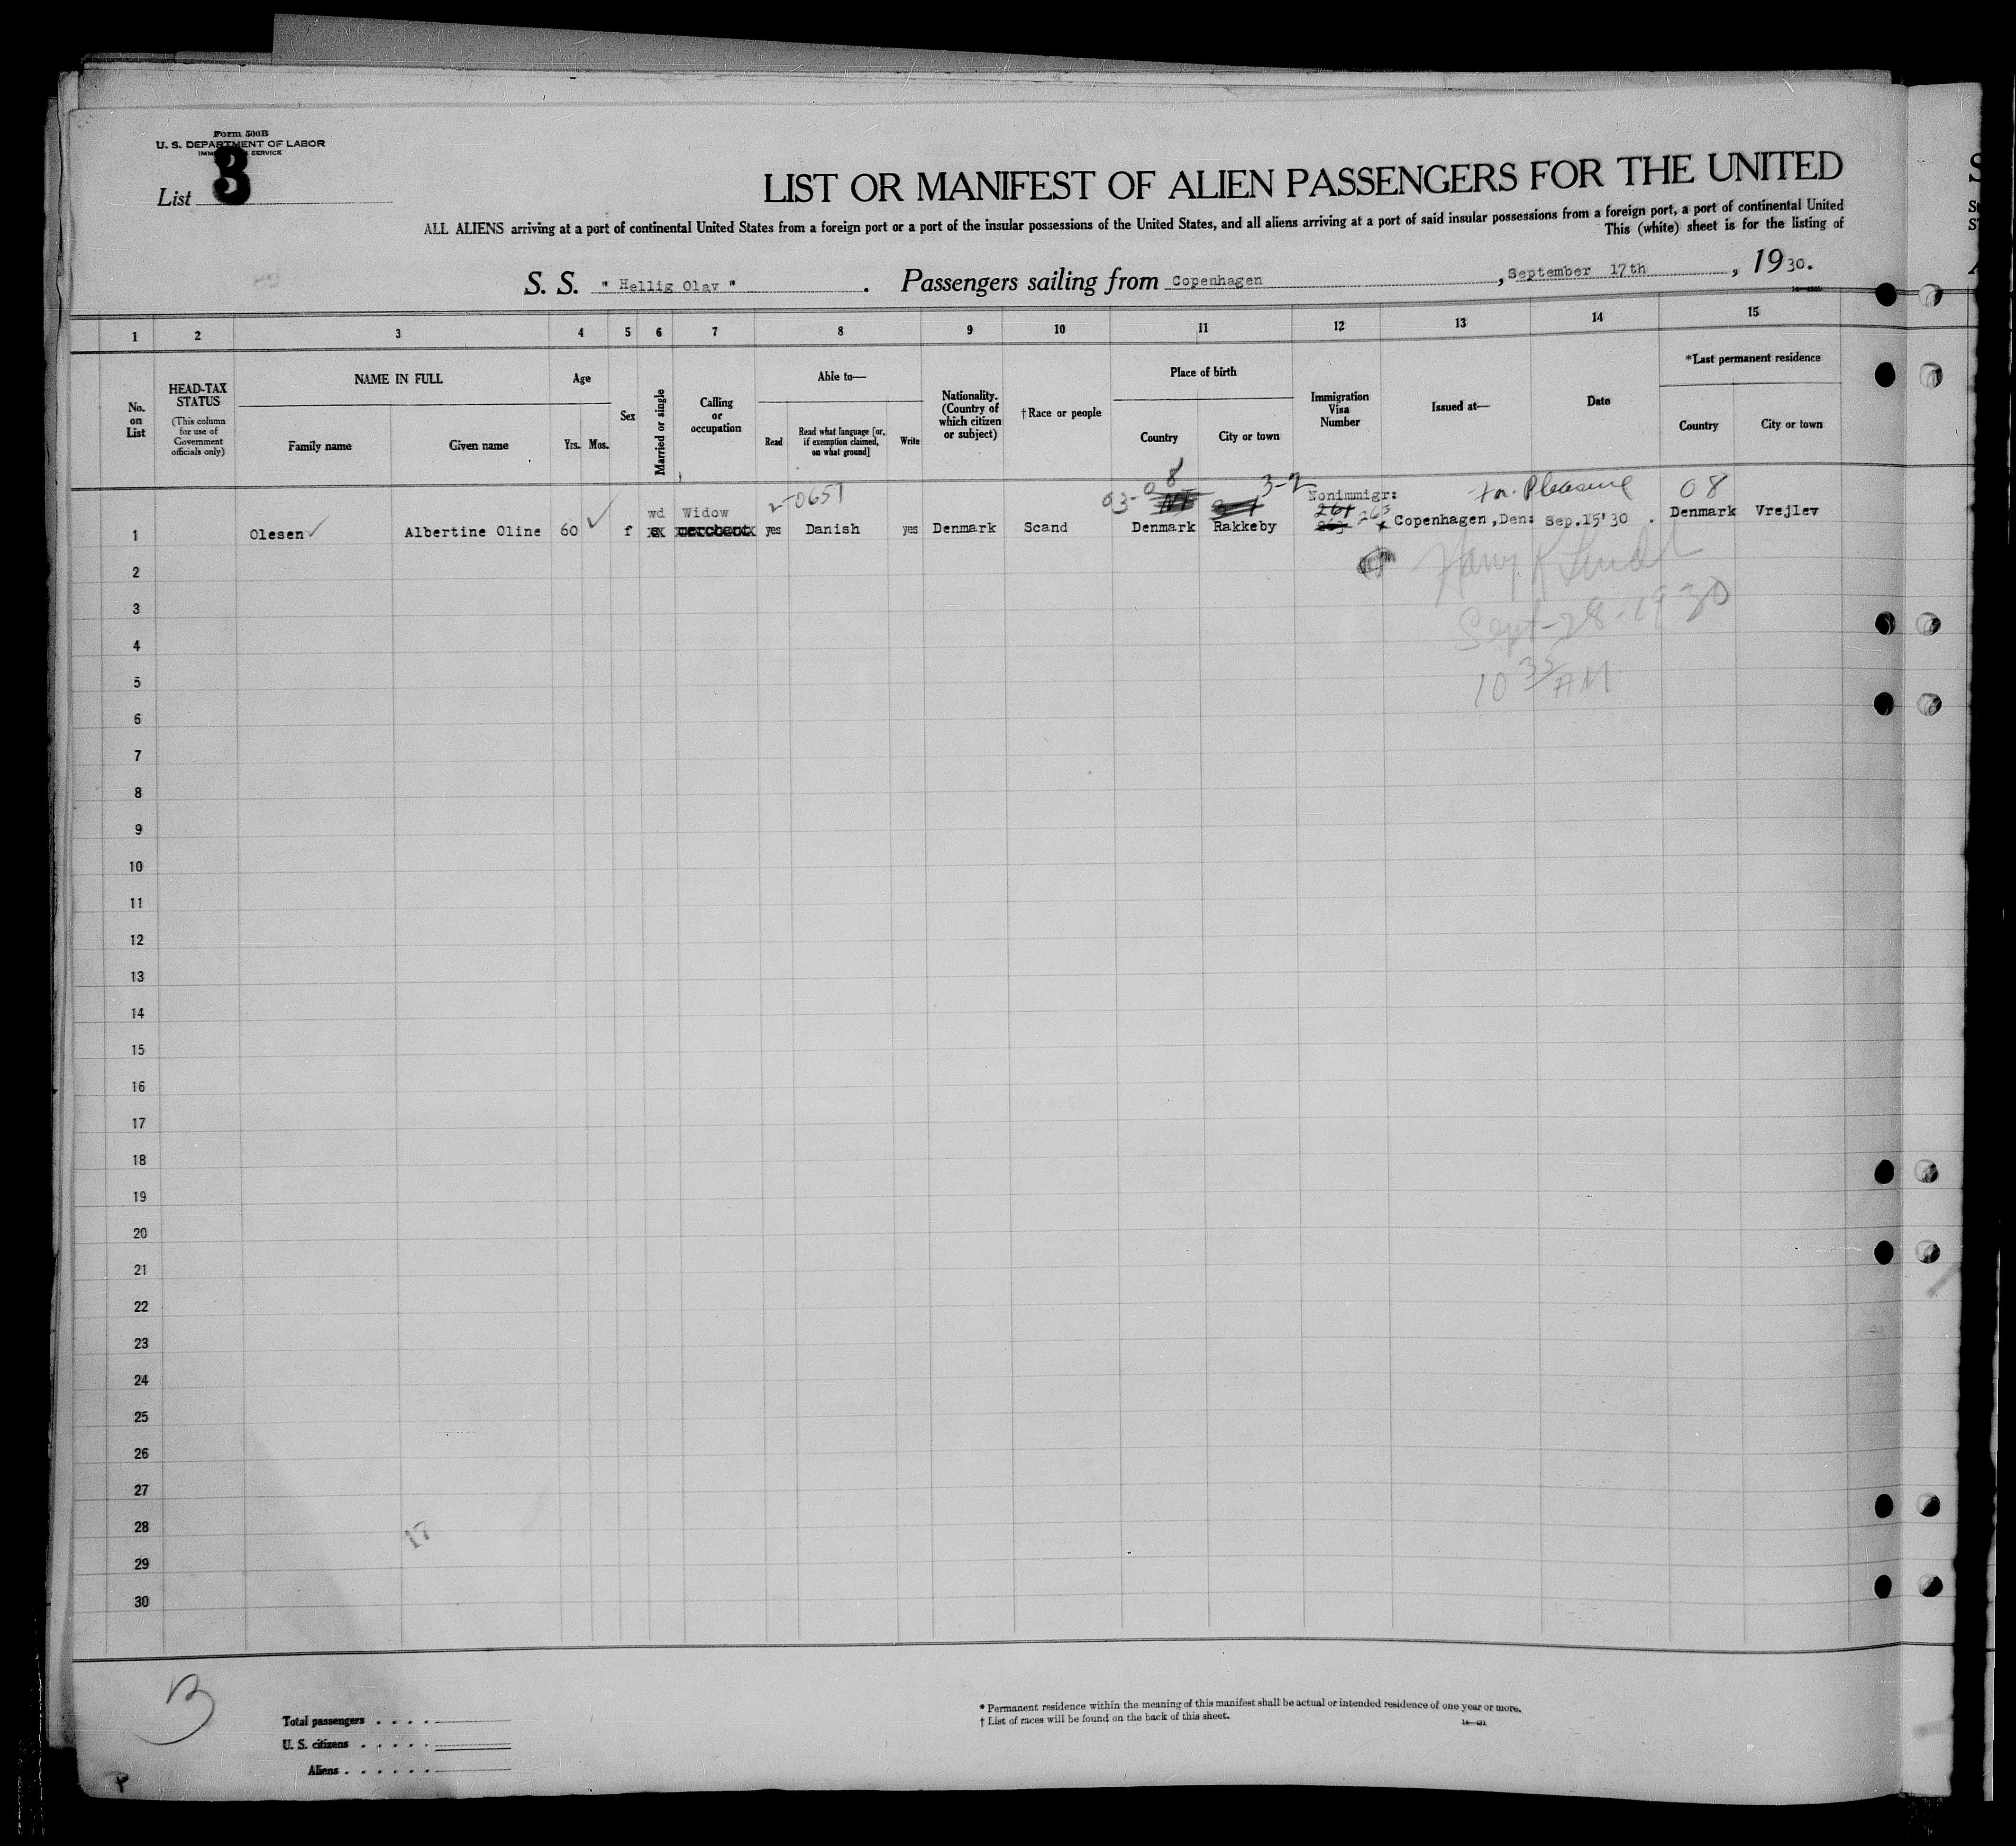 Form 500B
U. S. DEPARTMENT OF LABOR
SERVICE
List 3
LIST OR MANIFEST OF ALIEN PASSENGERS FOR THE UNITED
ALL ALIENS arriving at a port of continental United States from a foreign port or a port of the insular possessions of the United States, and all aliens arriving at a port of said insular possessions from a foreign port, a port of continental United
This (white) sheet is for the listing of
S. S. " Hellig Olav " . Passengers sailing from Copenhagen , September 17th , 1930.
1 2 3 4 5 6 7 8 9 10 11 12 13 14 15
No. on List
HEAD-TAX STATUS
(This column for use of Government officials only)
NAME IN FULL
Family name Given name
Age
Yrs. Mos.
Sex
Married or single
Calling or occupation
Able to—
Read
Read what language [or, if exemption claimed, on what ground]
Write
Nationality. (Country of which citizen or subject)
†Race or people
Place of birth
Country City or town
Immigration Visa Number
Issued at—
Date
*Last permanent residence
Country City or town
wd Widow 2-0657 03-08 3-2 Nonimmigr: for Pleasure 08
1 Olesen Albertine Oline 60 f yes Danish yes Denmark Scand Denmark Rakkeby 263 Copenhagen, Den: Sep.15'30 . Denmark Vrejlev
2
Sept-28-1930
3
4
10 35 AM
5
6
7
8
9
10
11
12
13
14
15
16
17
18
19
20
21
22
23
24
25
26
27
28
17
29
30
B
Total passengers . . . .
U. S. citizens . . . . .
Aliens . . . . . .
* Permanent residence within the meaning of this manifest shall be actual or intended residence of one year or more.
† List of races will be found on the back of this sheet.